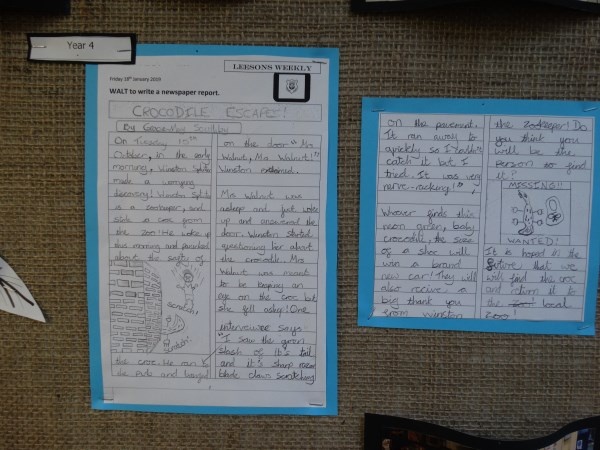 Year 4
LEESONS WEEKLY
Friday 18th January 2019
WALT to write a newspaper report.
CROCODILE ESCAPES!
By
On Tuesday
October, in the early
morning, Winston
made a worrying
discovery! Winston
is a zookeeper, and
a croc from
the zoo! He woke up
this morning and
about the safety of
the croc. He ran to
the and
on the door "Mrs
Walnut, Mrs Walnut!"
Winston
Mrs Walnut was
asleep and just woke
up and answered the
door. Winston started
questioning her about
the crocodile. Mrs
Walnut was meant
to be keeping an
eye on the croc but
she fell asleep! One
interviewee says:
"I saw the green
slash of it's tail
and it's sharp razor
blade claws scratching
on the pavement.
It ran away so
quickly so I couldn't
catch it but I
tried. It was very
nerve-racking!"
Whoever finds this
mean green, baby
crocodile, the size
of a shoe will
win a brand
new car! They will
also receive a
big thank you
from Winston
the zookeeper! Do
you think you
will be the
person to find
it?
MISSING!!
WANTED!
It is hoped in the
future that we
will find the croc
and return it to
the local
zoo!